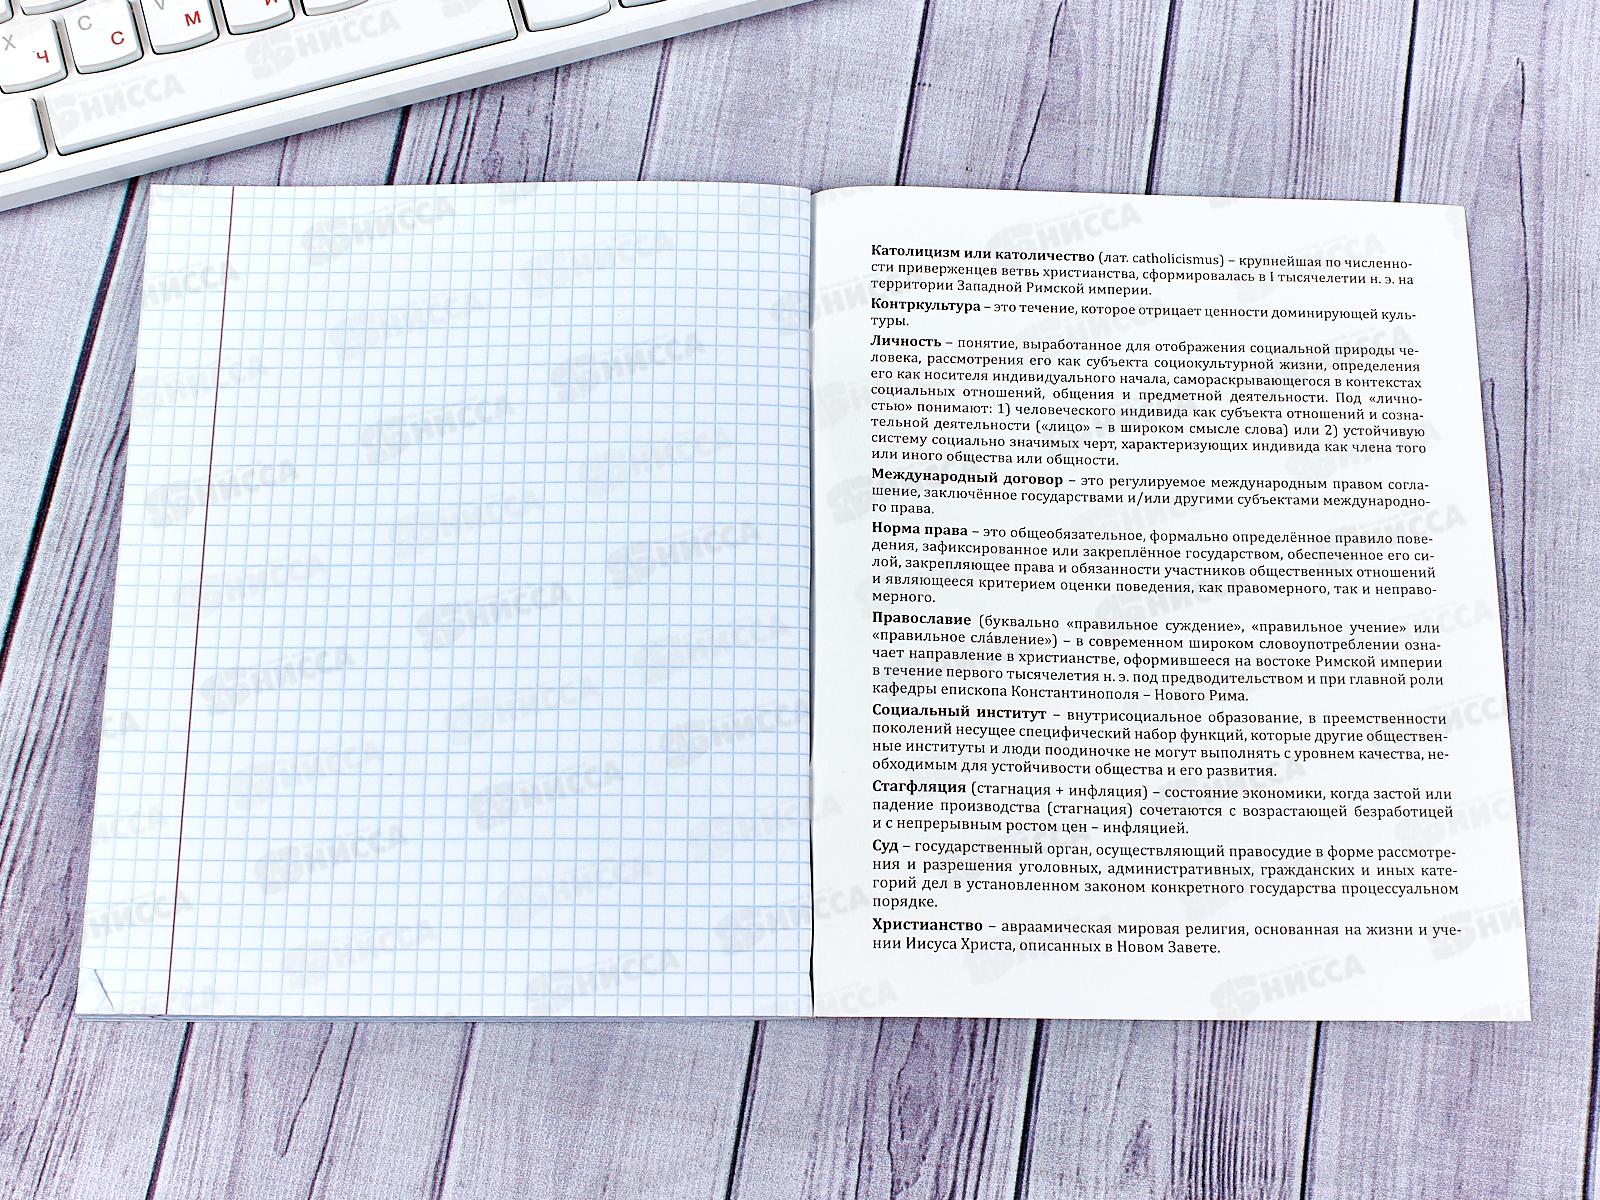 X Ч
C С
V М
И
Католицизм или католичество (лат. catholicismus) – крупнейшая по численно-
сти приверженцев ветвь христианства, сформировалась в I тысячелетии н. э. на
территории Западной Римской империи.
Контркультура – это течение, которое отрицает ценности доминирующей куль-
туры.
Личность – понятие, выработанное для отображения социальной природы че-
ловека, рассмотрения его как субъекта социокультурной жизни, определения
его как носителя индивидуального начала, самораскрывающегося в контекстах
социальных отношений, общения и предметной деятельности. Под «лично-
стью» понимают: 1) человеческого индивида как субъекта отношений и созна-
тельной деятельности («лицо» – в широком смысле слова) или 2) устойчивую
систему социально значимых черт, характеризующих индивида как члена того
или иного общества или общности.
Международный договор – это регулируемое международным правом согла-
шение, заключённое государствами и/или другими субъектами международно-
го права.
Норма права – это общеобязательное, формально определённое правило пове-
дения, зафиксированное или закреплённое государством, обеспеченное его си-
лой, закрепляющее права и обязанности участников общественных отношений
и являющееся критерием оценки поведения, как правомерного, так и неправо-
мерного.
Православие (буквально «правильное суждение», «правильное учение» или
«правильное слáвление») – в современном широком словоупотреблении озна-
чает направление в христианстве, оформившееся на востоке Римской империи
в течение первого тысячелетия н. э. под предводительством и при главной роли
кафедры епископа Константинополя – Нового Рима.
Социальный институт – внутрисоциальное образование, в преемственности
поколений несущее специфический набор функций, которые другие обществен-
ные институты и люди поодиночке не могут выполнять с уровнем качества, не-
обходимым для устойчивости общества и его развития.
Стагфляция (стагнация + инфляция) – состояние экономики, когда застой или
падение производства (стагнация) сочетаются с возрастающей безработицей
и с непрерывным ростом цен – инфляцией.
Суд – государственный орган, осуществляющий правосудие в форме рассмотре-
ния и разрешения уголовных, административных, гражданских и иных кате-
горий дел в установленном законом конкретного государства процессуальном
порядке.
Христианство – авраамическая мировая религия, основанная на жизни и уче-
нии Иисуса Христа, описанных в Новом Завете.